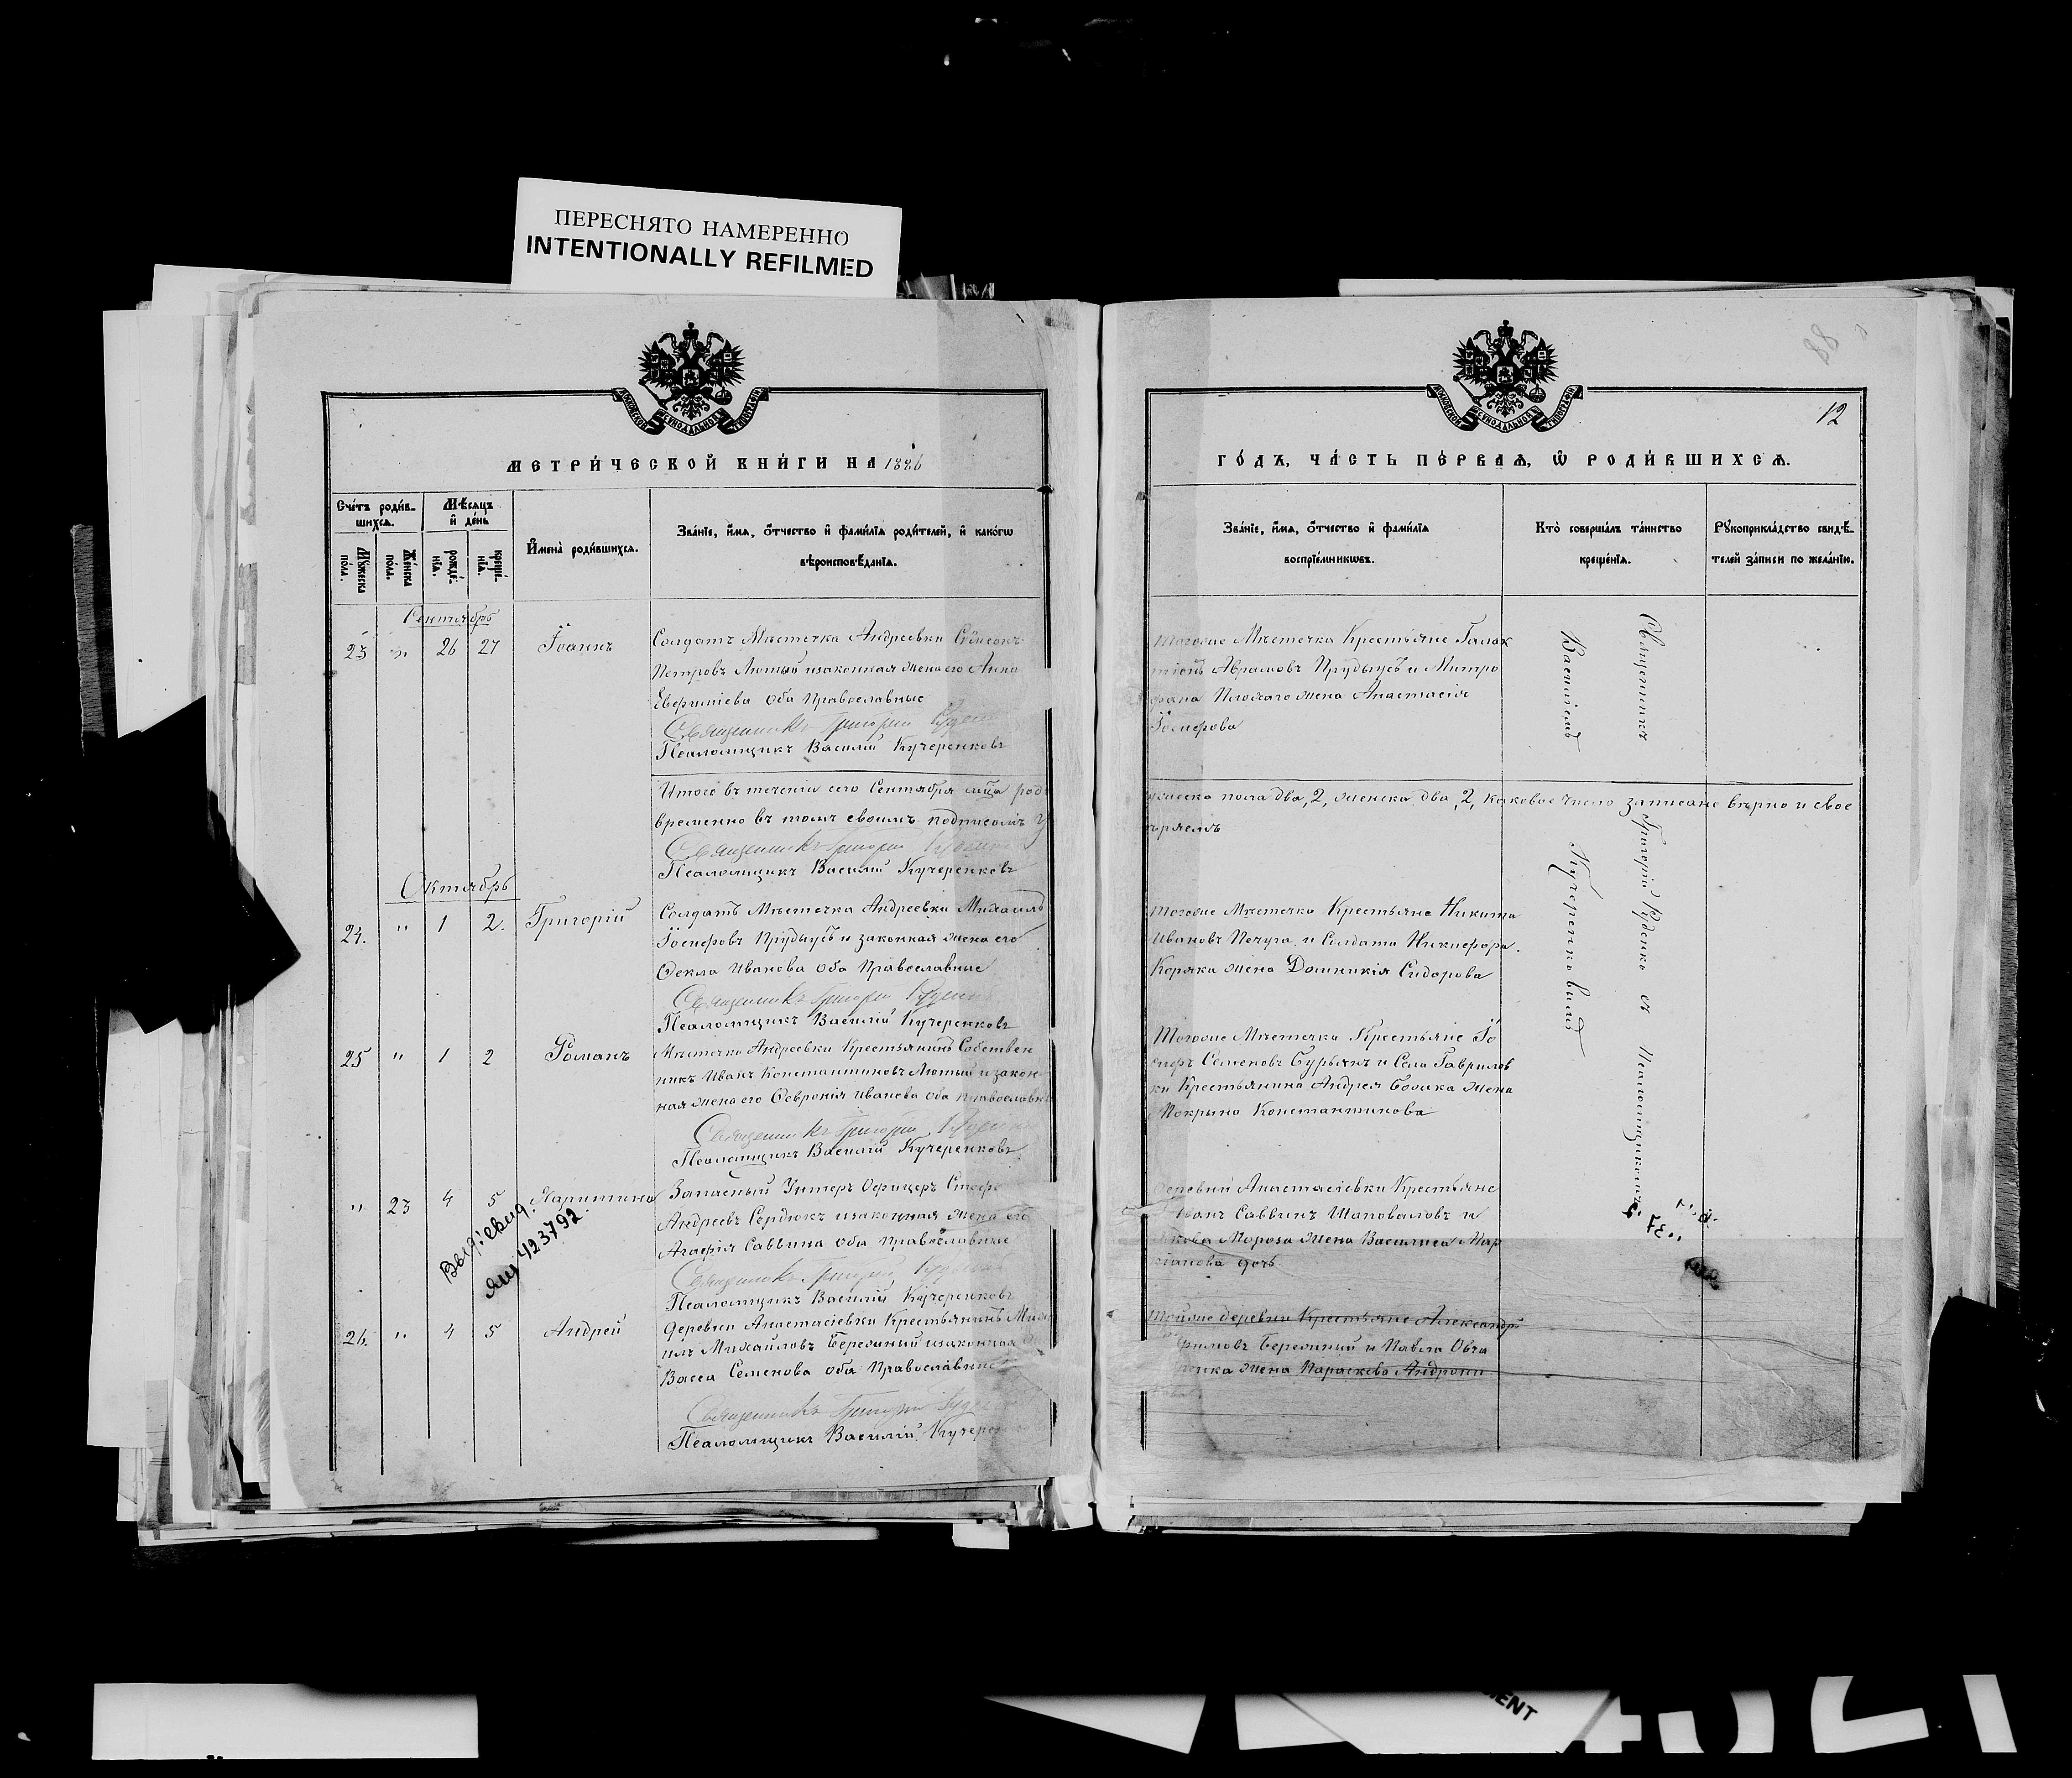 ПЕРЕСНЯТО НАМЕРЕННО
INTENTIONALLY REFILMED
МЕТРИ́ЧЕСКОЙ КНИ́ГИ НА 1886
Сче́тъ роди́в-
шихся.
Мѣсяцъ
и҆ де́нь
Мꙋ́жеска
по́ла.
Же́нска
по́ла.
рожде́-
нїѧ.
креще́-
нїѧ.
И҆мена̀ роди́вшихсѧ.
Зва́нїе, и҆́мѧ, ѻ҆́тчество и҆ фами́лїѧ роди́телей, и҆ како́гѡ
вѣроисповѣ́данїѧ.
Сентябрь
23 " 26 27 Іоаннъ
Солдатъ Мѣстечка Андреевки Сѵмеонъ
Петровъ Лютый и законная жена его Анна
Евфиміева оба Православные
Священникъ Григорій
Псаломщикъ Василій Кучеренковъ
Итого въ теченіи сего Сентября мца род
временно въ томъ своимъ подписомъ у
Священникъ Григорій
Псаломщикъ Василій Кучеренковъ
Октябрь
24. " 1 2. Григорій
Солдатъ Мѣстечка Андреевки Михаилъ
Іосифовъ Прудыусъ и законная жена его
Ѳекла Иванова оба Православные
Священникъ Григорій
Псаломщикъ Василій Кучеренковъ
25 " 1 2 Романъ
Мѣстечка Андреевки Крестьянинъ Собствен
никъ Иванъ Константиновъ Лютый и закон
ная жена его Ѳевронія Иванова оба Православн
Священникъ Григорій
Псаломщикъ Василій Кучеренковъ
" 23 4 5 Харитина
Запасный Унтеръ Офицеръ Стефа
Андреевъ Сердюкъ и законная жена его
Агафія Саввина оба Православные
Священникъ Григорій
Псаломщикъ Василій Кучеренковъ
423792
26. " 4 5 Андрей
деревни Анастасіевки Крестьянинъ
Михаиловъ Бережный и законная
Васса Семенова оба Православные
Священникъ Григорій
Псаломщикъ Василій
88
12
ГО́ДЪ, ЧА́СТЬ ПЕ́РВАѦ, Ѡ҆ РОДИ́ВШИХСѦ.
Зва́нїе, и҆́мѧ, ѻ҆́тчество и҆ фами́лїѧ
воспрїе́мникѡвъ.
Кто̀ соверша́лъ та́инство
креще́нїѧ.
Рꙋкоприкла́дство свидѣ́-
телей за́писи по жела́нїю.
Тогоже Мѣстечка Крестьяне Галак
тіонъ Абрамовъ Прудыусъ и Митро
фана Плохаго жена Анастасія
Іосифова
жеска пола два, 2, женска два, 2, каковое число записано вѣрно и свое
ряемъ
Тогоже Мѣстечка Крестьяне Никита
Ивановъ Печура и Солдата Никифора
Коряка жена Домникія Сидорова
Тогоже Мѣстечка Крестьяне Іо
сифъ Семеновъ Бурьянъ и Села Гаврилов
ки Крестьянина Андрея Божка жена
Мокрына Константинова
деревни Анастасіевки Крестьяне
Иванъ Саввинъ Шаповаловъ и
Якова Мороза жена Василиса Мар
кіанова дочь
Тойже деревни Крестьяне Александръ
фимовъ Бережный и Павла Овча
ренка жена Параскева Андрони
Священникъ Григорій Руденко съ Псаломщикомъ
Василіемъ Кучеренковымъ